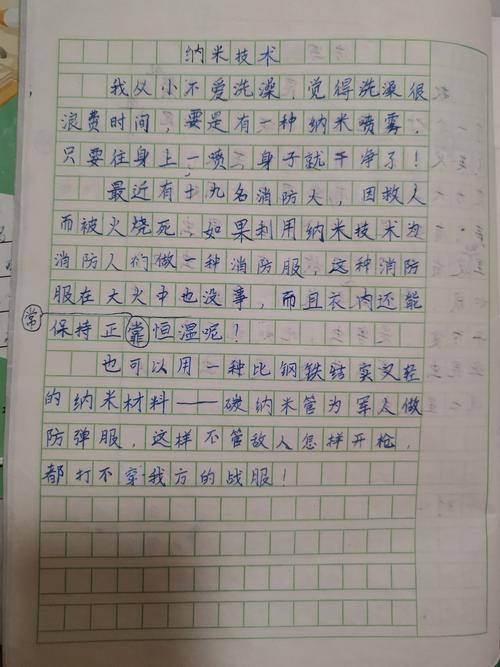 纳米技术
我从小不爱洗澡，觉得洗澡很
浪费时间，要是有一种纳米喷雾，
只要往身上一喷，身子就干净了！
最近有十九名消防人，因救人
而被火烧死，如果利用纳米技术为
消防人们做一种消防服，这种消防
服在大火中也没事，而且衣内还能
常
保持正靠恒温呢！
也可以用一种比钢铁结实又轻
的纳米材料——碳纳米管为军人做
防弹服，这样不管敌人怎样开枪，
都打不穿我方的战服！